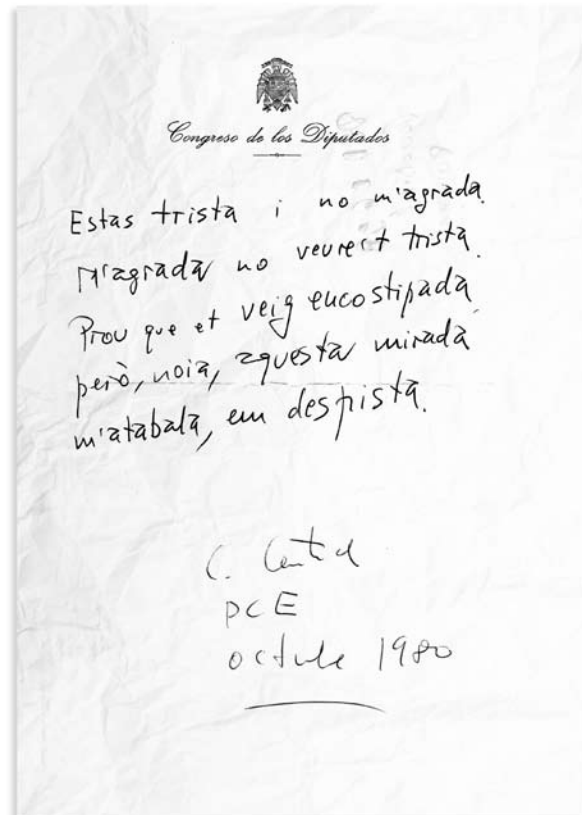 Congreso de los Diputados
Estas trista i no m'agrada.
M'agrada no veure't trista.
Prou que et veig encostipada
però, noia, aquesta mirada
m'atabala, em despista.
C.
PCE
octubre 1980